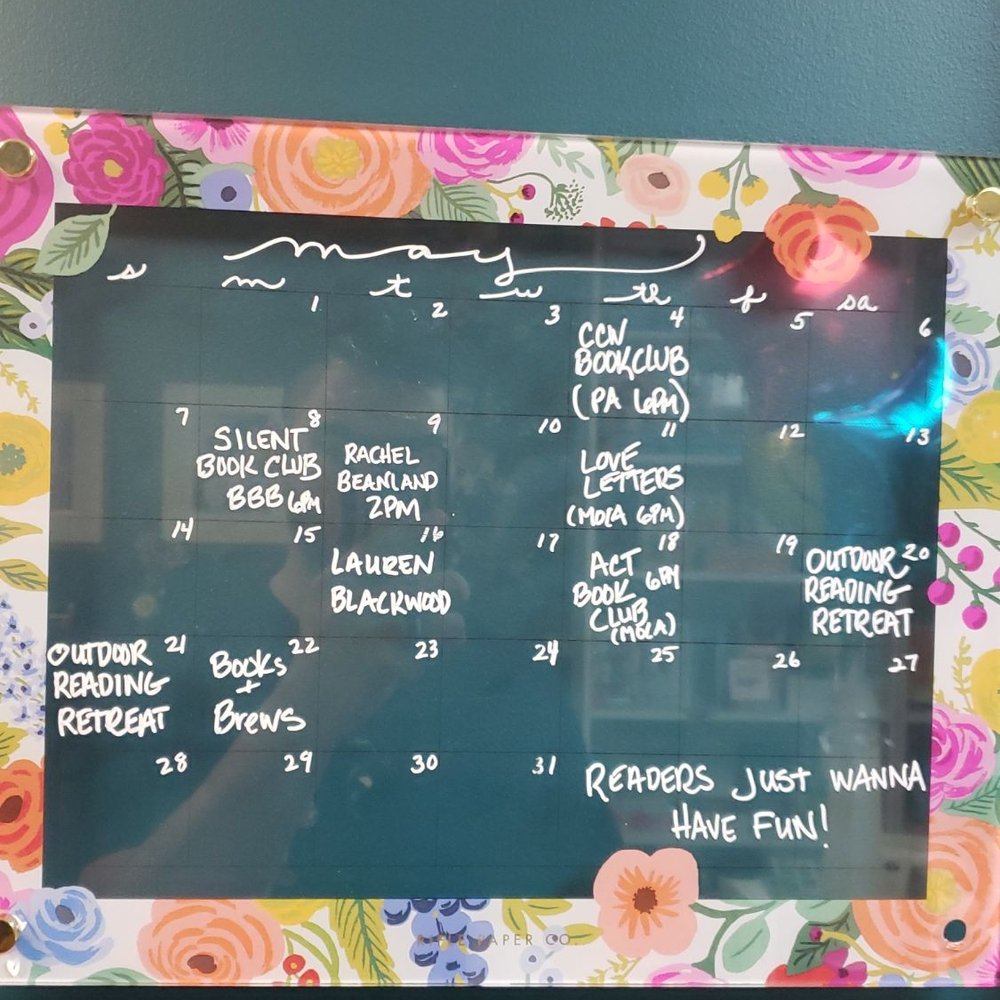 may
s m t w th f sa
1 2 3 4 5 6
CCN
BOOKCLUB
(PA 6PM)
7 8 9 10 11 12 13
SILENT
BOOK CLUB
BBB 6PM
RACHEL
BEANLAND
2PM
LOVE
LETTERS
(MOCA 6PM)
14 15 16 17 18 19 20
LAUREN
BLACKWOOD
ACT
BOOK 6PM
CLUB
(MOCA)
OUTDOOR
READING
RETREAT
21 22 23 24 25 26 27
OUTDOOR
READING
RETREAT
Books
+
Brews
28 29 30 31
READERS JUST WANNA
HAVE FUN!
PAPER CO.